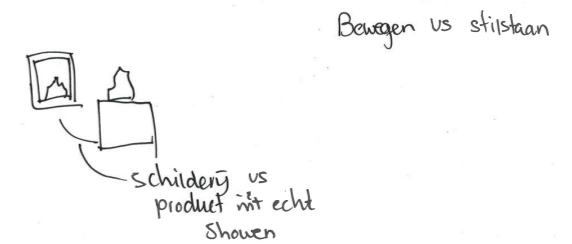 Bewegen vs stilstaan
schilderij vs
product in't echt
showen